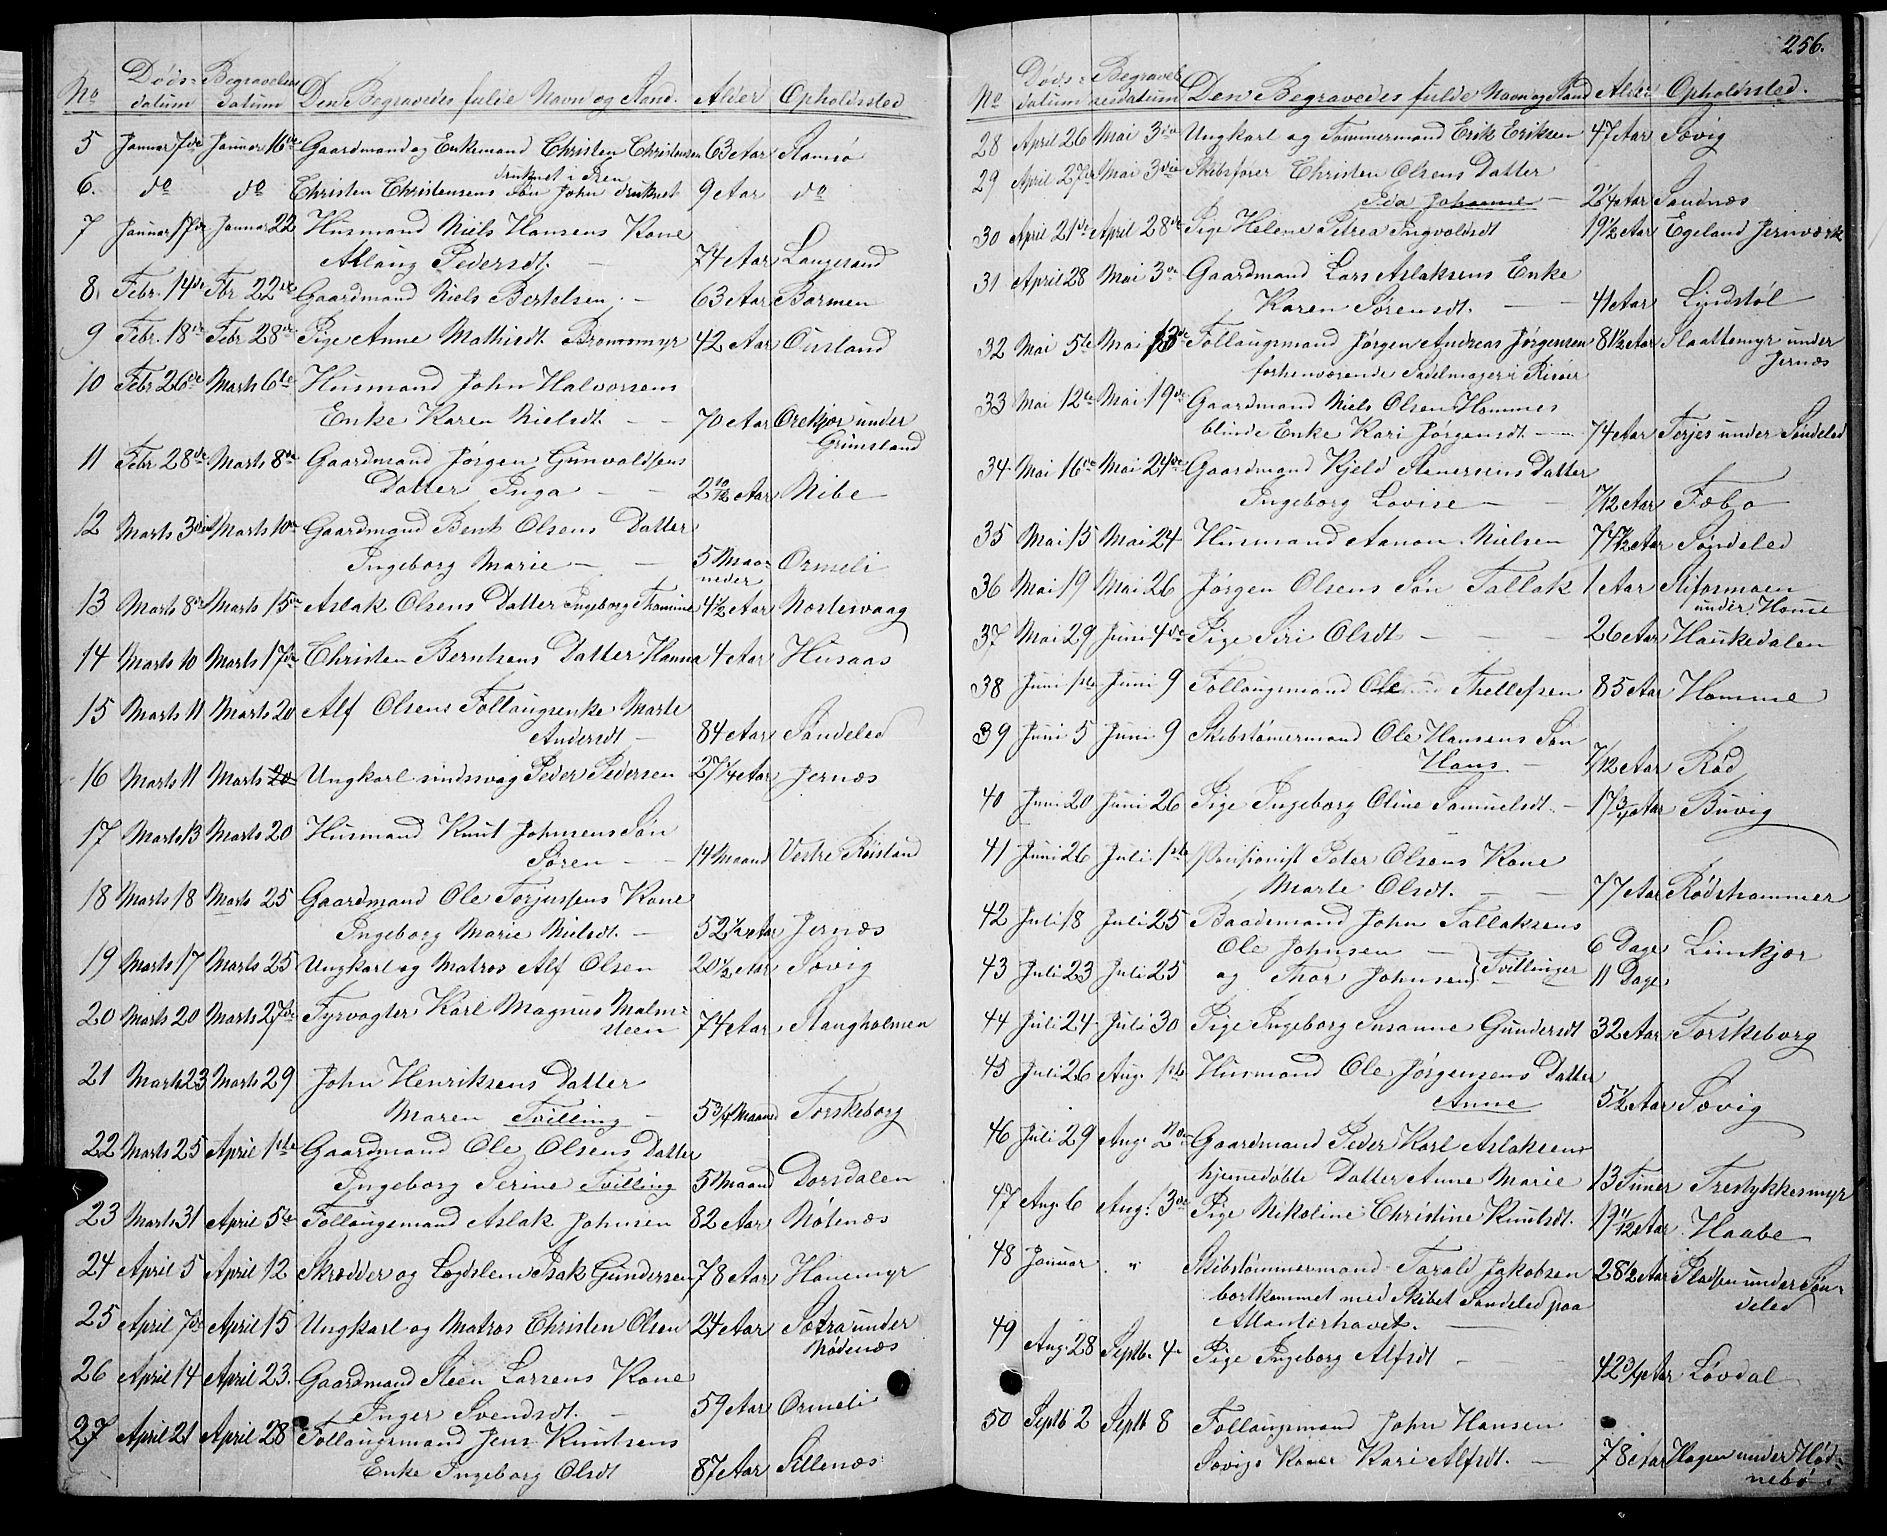 256.
No Døds= datum Begravelses datum Den Begravedes fulde Navn og Stand. Alder Opholdssted
5 Januar 7de Januar 16de Gaardmand og Enkemand Christen Christensen 63 Aar Stamsø
druknet i Søen
6. do do Christen Christensens Søn John druknet 9 Aar do
7 Januar 17de Januar 22 Husmand Niels Hansens Kone
Aslaug Pedersdt. — 74 Aar Langesand
8. Febr. 14de Fbr 22de Gaardmand Niels Bertelsen. — 63 Aar Barmen
9 Febr. 18de Febr 28de Pige Anne Mathisdt. Bromsmyr 42 Aar Ousland
10 Febr 26de Marts 6te Husmand John Halvorsens
Enke Karen Nielsdt. — — 70 Aar Orekjær under
Grimsland
11 Febr 28de Marts 8de Gaardmand Jørgen Gunvaldsens
Datter Inga — — 2 10/12 Aar Nibe
12 Marts 3die Marts 10de Gaardmand Bent Olsens Datter
Ingeborg Marie — — 5 Maaneder Ormeli
13 Marts 8de Marts 15de Aslak Olsens Datter Ingeborg Thomine 4 1/2 Aar Nostesvaag
14 Marts 10 Marts 17de Christen Berntsens Datter Hanna 4 Aar Husaas
15 Marts 11 Marts 20 Alf Olsens Follaugsenke Marte
Andersdt — 84 Aar Søndeled
16 Marts 11 Marts 20 Ungkarl sindssvag Peder Pedersen 27 1/4 Aar Jernæs
17 Marts 13 Marts 20 Husmand Knut Johnsens Søn
Søren — — 14 Maand Vestre Røisland
18 Marts 18 Marts 25 Gaardmand Ole Torjussens Kone
Ingeborg Marie Nielsdt. — 52 1/2 Aar Jernæs
19 Marts 17 Marts 25 Ungkarl og Matros Alf Olsen 20 1/2 Aar Sovig
20 Marts 20 Marts 27de Fyrvogter Karl Magnus Malm=
steen 74 Aar Stangholmen
21 Marts 23 Marts 29 John Henriksens Datter
Maren Tvilling — 5 3/4 Maand Torskeborg
22 Marts 25 April 1ste Gaardmand Ole Olsens Datter
Ingeborg Serine Tvilling 5 Maand Dorsdalen
23 Marts 31 April 5te Follaugsmand Aslak Johnsen 82 Aar Nøtenæs
24 April 5 April 12 Skrædder og Lægdslem Isak Gundersen 78 Aar Hanemyr
25 April 7de April 15 Ungkarl og Matros Christen Olsen 24 Aar Sætra under
Mødenæs
26 April 14 April 23. Gaardmand Steen Larsens Kone
Inger Svendsdt. — 59 Aar Ormeli
27 April 21 April 28 Follaugsmand Jens Knutsens
Enke Ingeborg Olsdt 87 Aar Sillenæs
No Døds= datum Begravelsesdatum Den Begravedes fulde Navn og Stand Alder Opholdssted.
28 April 26 Mai 3die Ungkarl og Tømmermand Erik Eriksen 47 Aar Sævig
29 April 27de Mai 3die Skibsfører Christen Olsens Datter
Ida Johanne — 2 1/4 Aar Sandnæs
30 April 21de April 28de Pige Helene Petrea Ingvoldsdt 19 1/2 Aar Egeland Jernværk
31 April 28 Mai 3de Gaardmand Lars Aslaksens Enke
Karen Sørensdt. — — 41 Aar Lindstøl
32 Mai 5te Mai 13de Follaugsmand Jørgen Andreas Jørgensen 81 1/2 Aar Slaattemyr under
forhenværende Sadelmager i Risøer Jernæs
33 Mai 12te Mai 19de Gaardmand Niels Olsens Hommes
blinde Enke Kari Jørgensdt — 74 Aar Terjes under Søndeled
34 Mai 16de Mai 24de Gaardmand Kjeld Stenersens Datter
Ingeborg Lovise — — 7/12 Aar Fæbo
35 Mai 15 Mai 24 Husmand Aanon Nielsen 74 1/2 Aar Søndeled
36 Mai 19 Mai 26 Jørgen Olsens Søn Tallak 1 Aar Stifosmoen
under Homme
37 Mai 29 Juni 4de Pige Siri Olsdt — — — 26 Aar Haukedalen
38 Juni 1ste Juni 9 Follaugsmand Ole Thellefsen 85 Aar Homme
39 Juni 5 Juni 9 Skibstømermand Ole Hansens Søn
Hans — 7/12 Aar Rød
40 Juni 20 Juni 26 Pige Ingeborg Oline Samuelsdt. — 17 3/4 Aar Buvig
41 Juni 26 Juli 1ste Pensionist Peter Olsens Kone
Marte Olsdt. — — 77 Aar Rødshammer
42 Juli 18 Juli 25 Baadsmand John Tallaksens
Ole Johnsen — 6 Dage Limkjær
43 Juli 23 Juli 25 og Thor Johnsen } Tvillinger 11 Dage
44 Juli 24 Juli 30 Pige Ingeborg Susanne Gundersdt 32 Aar Torskeborg
45 Juli 26 Aug. 1ste Husmand Ole Jørgensens Datter
Anne 5 1/2 Aar Sævig
46 Juli 29 Aug. 2de Gaardmand Peder Karl Aslaksens
hjemedøbte Datter Anne Marie 13 Timer Trestykkesmyr
47 Aug. 6 Aug. 13de Pige Nikoline Christine Knutsdt. 19 11/12 Aar Haabe
48 Januar " Skibstømmermand Tarald Jakobsen 28 1/2 Aar Pladsen under Søn=
bortkommet med Skibet Søndeled paa deled
Atlanterhavet. —
49 Aug. 28 Septb. 4de Pige Ingeborg Alfsdt — — 42 3/4 Aar Løvdal
50 Septb 2 Septb 8 Follaugsmand John Hansen
Sovigs Kone Kari Alfsdt. — 78 Aar Hagen under Hød=
nebø